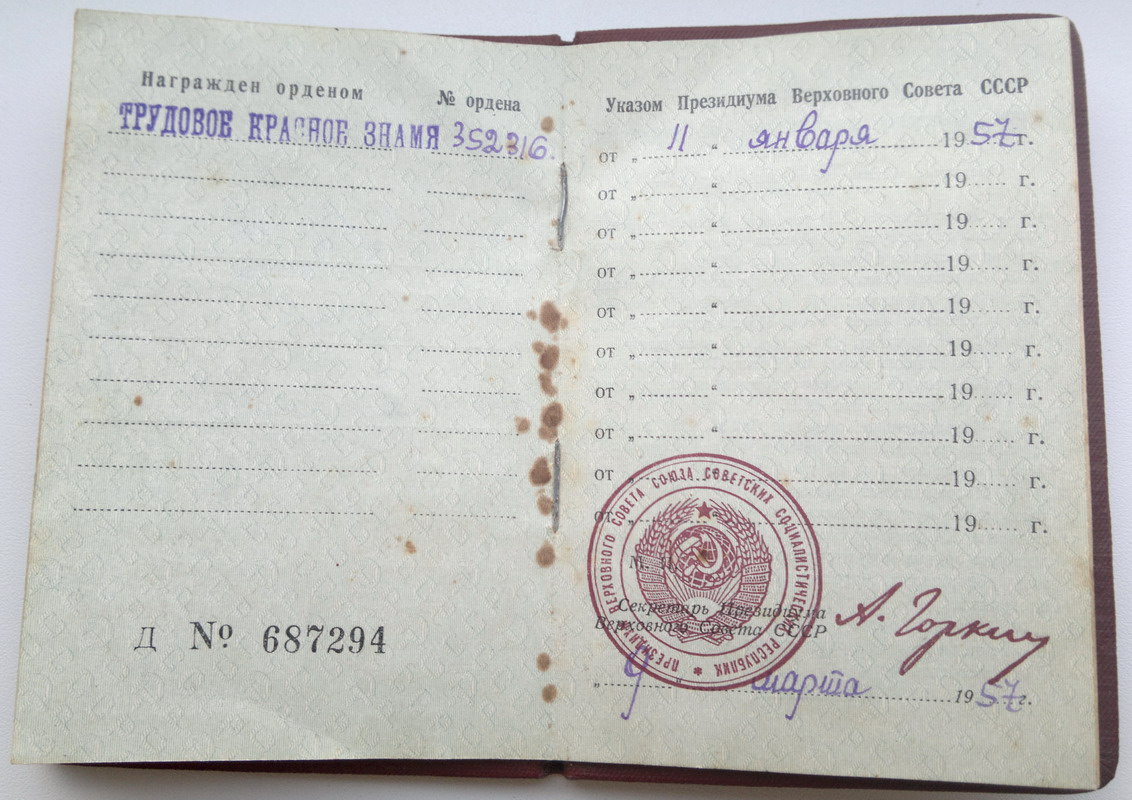 Награжден орденом № ордена
ТРУДОВОЕ КРАСНОЕ ЗНАМЯ 352316.
Д № 687294
Указом Президиума Верховного Совета СССР
от „ 11 “ января 1957 г.
от „ “ 19 г.
от „ “ 19 г.
от „ “ 19 г.
от „ “ 19 г.
от „ “ 19 г.
от „ “ 19 г.
от „ “ 19 г.
от „ “ 19 г.
от „ “ 19 г.
ПРЕЗИДИУМ ВЕРХОВНОГО СОВЕТА СОЮЗА СОВЕТСКИХ СОЦИАЛИСТИЧЕСКИХ РЕСПУБЛИК *
М. П.
Секретарь Президиума
Верховного Совета СССР
А. Горкин
„ 9 “ марта 1957 г.